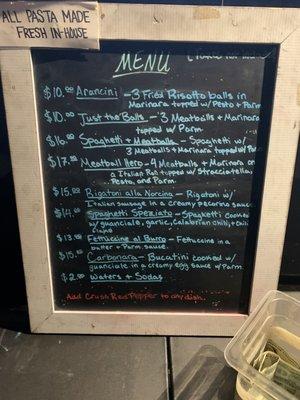 ALL PASTA MADE
FRESH IN-HOUSE
MENU
$10.00 Arancini - 3 Fried Risotto balls in
Marinara topped w/ Pesto + Parm
$10.00 Just the Balls - 3 Meatballs + Marinara
topped w/ Parm
$16.00 Spaghetti + Meatballs - Spaghetti w/
3 Meatballs + Marinara topped w/ Parm
$17.00 Meatball Hero - 4 Meatballs + Marinara on
a Italian Roll topped w/ Stracciatella,
Pesto, and Parm.
$15.00 Rigatoni alla Norcina - Rigatoni w/
Italian Sausage in a creamy pecorino sauce
$14.00 Spaghetti Speziato - Spaghetti cooked
w/ guanciale, garlic, Calabrian chili, +
$13.00 Fettuccine al Burro - Fettuccine in a
butter + Parm sauce.
$15.00 Carbonara - Bucatini cooked w/
guanciale in a creamy egg sauce w/ Parm.
$2.00 Waters + Sodas
Add Crush Red Pepper to any dish.